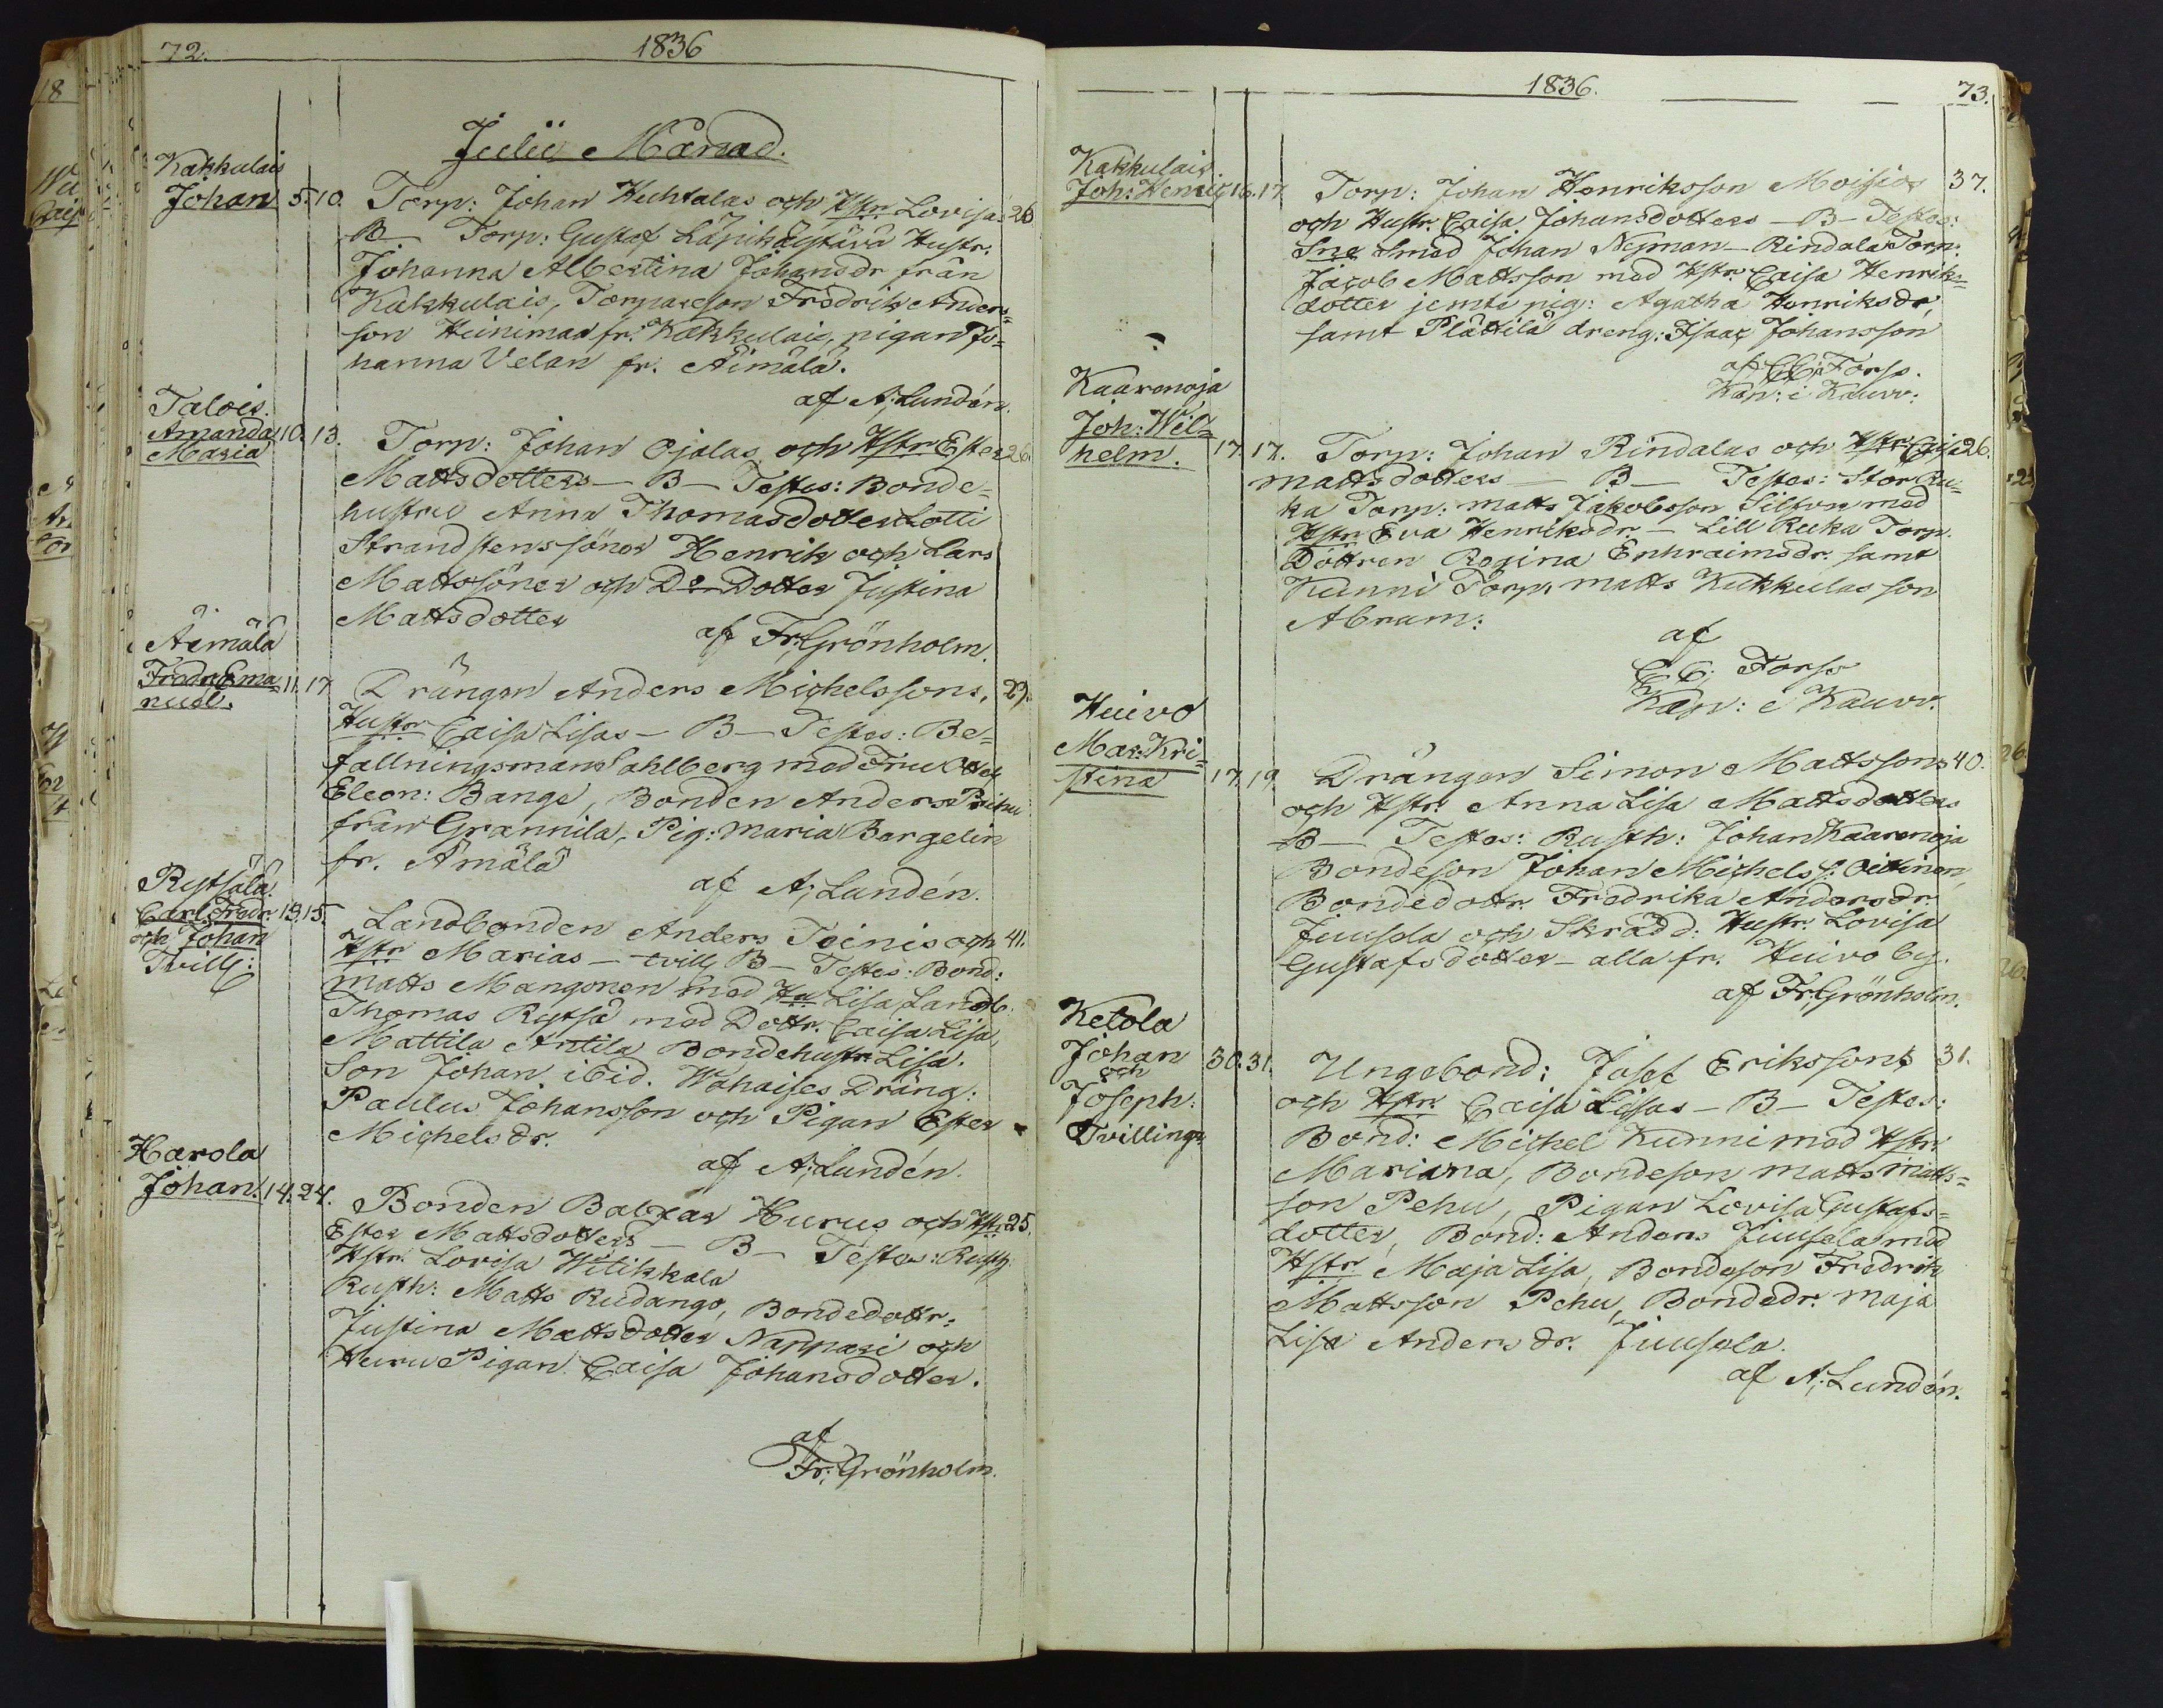 72.
1836
Julii Månad.
Kakkulais
Johan 5. 10. Torp: Johan Huhtalas och Hstr Lovisas 26
B Torp: Gustaf Hustr.
Johanna Albertina Johansdr från
Kakkulais, Torpareson Fredrik Anders=
son Heinimaa fr. Kakkulais, pigan Jo=
hanna Velan fr. Äimälä.
af A; Lundén.
Talois.
Amanda 10. 13. Torp: Johan Ojalas och Hstr Ester 26.
Maria
Mattsdotters — B — Testes: Bonde=
hustru Anna Thomasdotter Lotti
Strandstens söner Henrik och Lars
Mattssöner och Do Dotter Justina
Mattsdotter
af Fr; Grönholm.
Äimälä
Fredr. Ema= 11. 17 Drängen Anders Michelssons, 29.
nuel.
Hustr Caisa Lisas — B — Testes: Be=
fallningsman Sahlberg med Fru
Eleon: Bange, Bonden Anders
från Grannila, Pig: Maria Bargelin
fr. Ämälä
af A; Lundén.
Rytsälä.
Carl Fredr. 13. 15. Landbonden Anders Toinis och 41.
och Johan
Tvill:
Hstr Marias — tvill B — Testes: Bond:
Matts Mangonen med Hu Lisa, Landb.
Thomas Rytsä med Dottr. Caisa Lisa,
Mattila Antila Bondehustr Lisa.
Son Johan ibid. Wähaises Dräng:
Paulus Johansson och Pigan Ester
Michelsdr.
af A; Lundén.
Harola
Johan. 14. 24. Bonden Balzar Hurus och Hstr 25.
Ester Mattsdotters — B — Testes: Rusth.
Hstr. Lovisa Witikkala
Rusth: Matts Rudango, Bondedottr.
Justina Mattsdotter Nappari och
Huru Pigan Caisa Johansdotter.
af
Fr; Grönholm.
1836.
73.
Kakkulais.
Joh: Henric 16. 17 Torp: Johan Henriksson Moisios 37.
och Hustr. Caisa Johansdotters — B — Testes:
Smed Johan Nyman — Rindala Torp:
Jacob Mattsson med Hstr. Caisa Henriks=
dotter jemte pig: Agatha Henriksdr,
samt Plättilä dreng: Isaac Johansson
af CG; Forss.
Kap: i Kauv:
Kaarenoja
Joh: Wil=
helm. 17. 17. Torp: Johan Rindalas och Hstr Caisa 26.
Mattsdotters — B — Testes: Stor Ru=
ka Torp: Matts Jakobsson Silfvn med
Hstr Eva Henriksdr — Lill Ruka Torp.
Döttren Regina Enhraimsdr. samt
Kunni Torp. Matts Kukkulas son
Abram:
af
CG; Forss
Kap: i Kauv.
Huivo
Mar: Kri=
stina 17. 19. Drängen Simon Mattssons 40.
och Hstr. Anna Lisa Mattsdotters
B — Testes: Rusth: Johan Kaarenoja
Bondeson Johan Michels s. Oittinen,
Bondedottr. Fredrika Andersdr.
Juusola och Skrädd: Hustr. Lovisa
Gustafsdotter — alla fr. Huivo by.
af Fr; Grönholm.
Ketola
Johan 30. 31. Ungebond: Josef Erikssons 31.
och
Joseph:
Tvillingr
och Hstr. Caisa Lisas — B — Testes:
Bond: Michel Kunni med Hstr.
Mariana, Bondeson Matts Matts=
son Pehu, Pigan Lovisa Gustafs=
dotter, Bond: Anders Juusola med
Hstr Maja Lisa, Bondeson Fredrik
Mattsson Pehu, Bondedr. Maja
Lisa Andersdr. Juusola.
af A; Lundén.